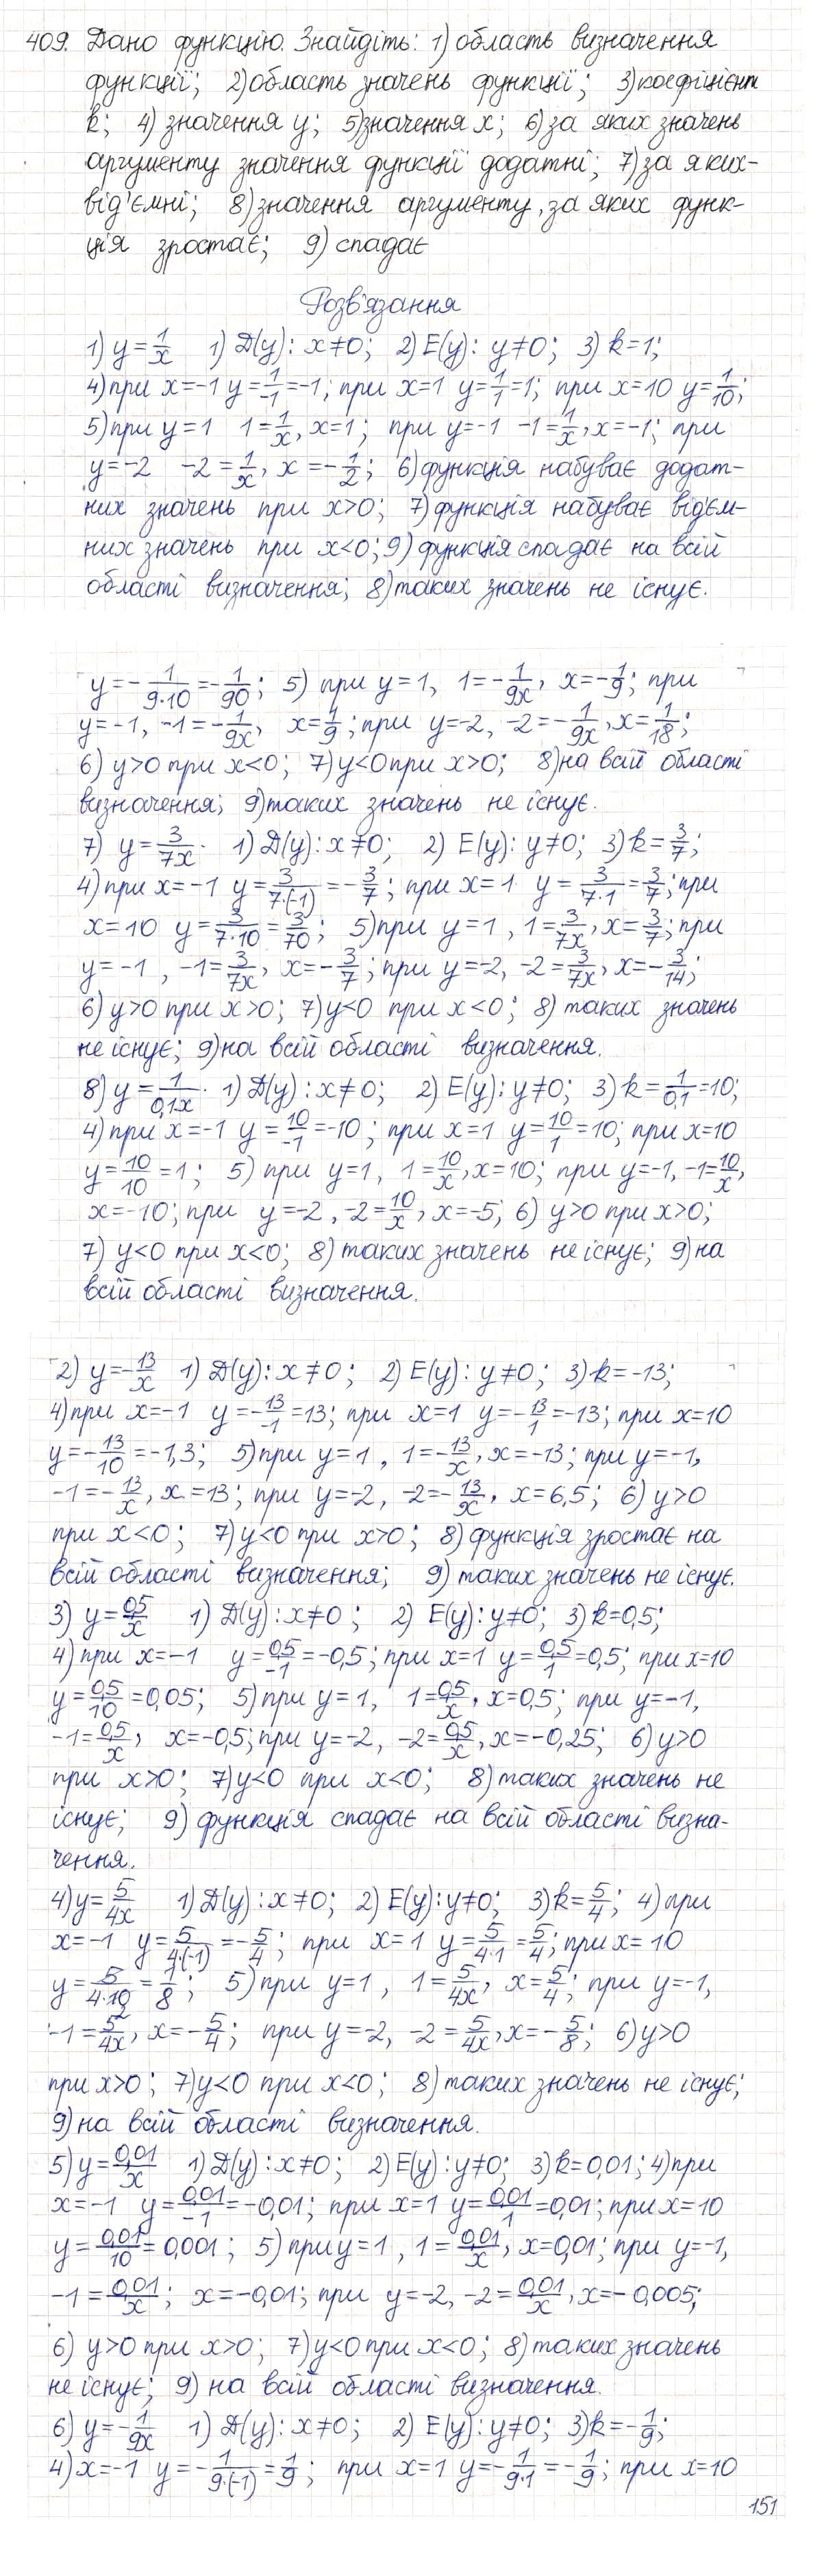 409. Дано функцію. Знайдіть: 1) область визначення
функції; 2) область значень функції; 3) коефіцієнт
k; 4) значення y; 5) значення x; 6) за яких значень
аргументу значення функції додатні; 7) за яких-
від'ємні; 8) значення аргументу, за яких функ-
ція зростає; 9) спадає
Розв'язання
1) y = 1/x 1) D(y): x ≠ 0; 2) E(y): y ≠ 0; 3) k = 1;
4) при x = -1 y = 1/-1 = -1; при x = 1 y = 1/1 = 1; при x = 10 y = 1/10;
5) при y = 1 1 = 1/x, x = 1; при y = -1 -1 = 1/x, x = -1; при
y = -2 -2 = 1/x, x = -1/2; 6) функція набуває додат-
них значень при x > 0; 7) функція набуває від'єм-
них значень при x < 0; 9) функція спадає на всій
області визначення; 8) таких значень не існує.
y = -1/(9·10) = -1/90; 5) при y = 1, 1 = -1/9x, x = -1/9; при
y = -1, -1 = -1/9x, x = 1/9; при y = -2, -2 = -1/9x, x = 1/18;
6) y > 0 при x < 0; 7) y < 0 при x > 0; 8) на всій області
визначення; 9) таких значень не існує.
7) y = 3/7x. 1) D(y): x ≠ 0; 2) E(y): y ≠ 0; 3) k = 3/7;
4) при x = -1 y = 3/(7·(-1)) = -3/7; при x = 1 y = 3/(7·1) = 3/7; при
x = 10 y = 3/(7·10) = 3/70; 5) при y = 1, 1 = 3/7x, x = 3/7; при
y = -1, -1 = 3/7x, x = -3/7; при y = -2, -2 = 3/7x, x = -3/14;
6) y > 0 при x > 0; 7) y < 0 при x < 0; 8) таких значень
не існує; 9) на всій області визначення.
8) y = 1/0,1x. 1) D(y): x ≠ 0; 2) E(y): y ≠ 0; 3) k = 1/0,1 = 10;
4) при x = -1 y = 10/-1 = -10; при x = 1 y = 10/1 = 10; при x = 10
y = 10/10 = 1; 5) при y = 1, 1 = 10/x, x = 10; при y = -1, -1 = 10/x,
x = -10; при y = -2, -2 = 10/x, x = -5; 6) y > 0 при x > 0;
7) y < 0 при x < 0; 8) таких значень не існує; 9) на
всій області визначення.
2) y = -13/x 1) D(y): x ≠ 0; 2) E(y): y ≠ 0; 3) k = -13;
4) при x = -1 y = -13/-1 = 13; при x = 1 y = -13/1 = -13; при x = 10
y = -13/10 = -1,3; 5) при y = 1, 1 = -13/x, x = -13; при y = -1,
-1 = -13/x, x = 13; при y = -2, -2 = -13/x, x = 6,5; 6) y > 0
при x < 0; 7) y < 0 при x > 0; 8) функція зростає на
всій області визначення; 9) таких значень не існує.
3) y = 0,5/x 1) D(y): x ≠ 0; 2) E(y): y ≠ 0; 3) k = 0,5;
4) при x = -1 y = 0,5/-1 = -0,5; при x = 1 y = 0,5/1 = 0,5; при x = 10
y = 0,5/10 = 0,05; 5) при y = 1, 1 = 0,5/x, x = 0,5; при y = -1,
-1 = 0,5/x, x = -0,5; при y = -2, -2 = 0,5/x, x = -0,25; 6) y > 0
при x > 0; 7) y < 0 при x < 0; 8) таких значень не
існує; 9) функція спадає на всій області визна-
чення.
4) y = 5/4x 1) D(y): x ≠ 0; 2) E(y): y ≠ 0; 3) k = 5/4; 4) при
x = -1 y = 5/(4·(-1)) = -5/4; при x = 1 y = 5/(4·1) = 5/4; при x = 10
y = 5/(4·10) = 1/8; 5) при y = 1, 1 = 5/4x, x = 5/4; при y = -1,
-1 = 5/4x, x = -5/4; при y = -2, -2 = 5/4x, x = -5/8; 6) y > 0
при x > 0; 7) y < 0 при x < 0; 8) таких значень не існує;
9) на всій області визначення.
5) y = 0,01/x 1) D(y): x ≠ 0; 2) E(y): y ≠ 0; 3) k = 0,01; 4) при
x = -1 y = 0,01/-1 = -0,01; при x = 1 y = 0,01/1 = 0,01; при x = 10
y = 0,01/10 = 0,001; 5) при y = 1, 1 = 0,01/x, x = 0,01; при y = -1,
-1 = 0,01/x; x = -0,01; при y = -2, -2 = 0,01/x, x = -0,005;
6) y > 0 при x > 0; 7) y < 0 при x < 0; 8) таких значень
не існує; 9) на всій області визначення.
6) y = -1/9x 1) D(y): x ≠ 0; 2) E(y): y ≠ 0; 3) k = -1/9;
4) x = -1 y = -1/(9·(-1)) = 1/9; при x = 1 y = -1/(9·1) = -1/9; при x = 10
151